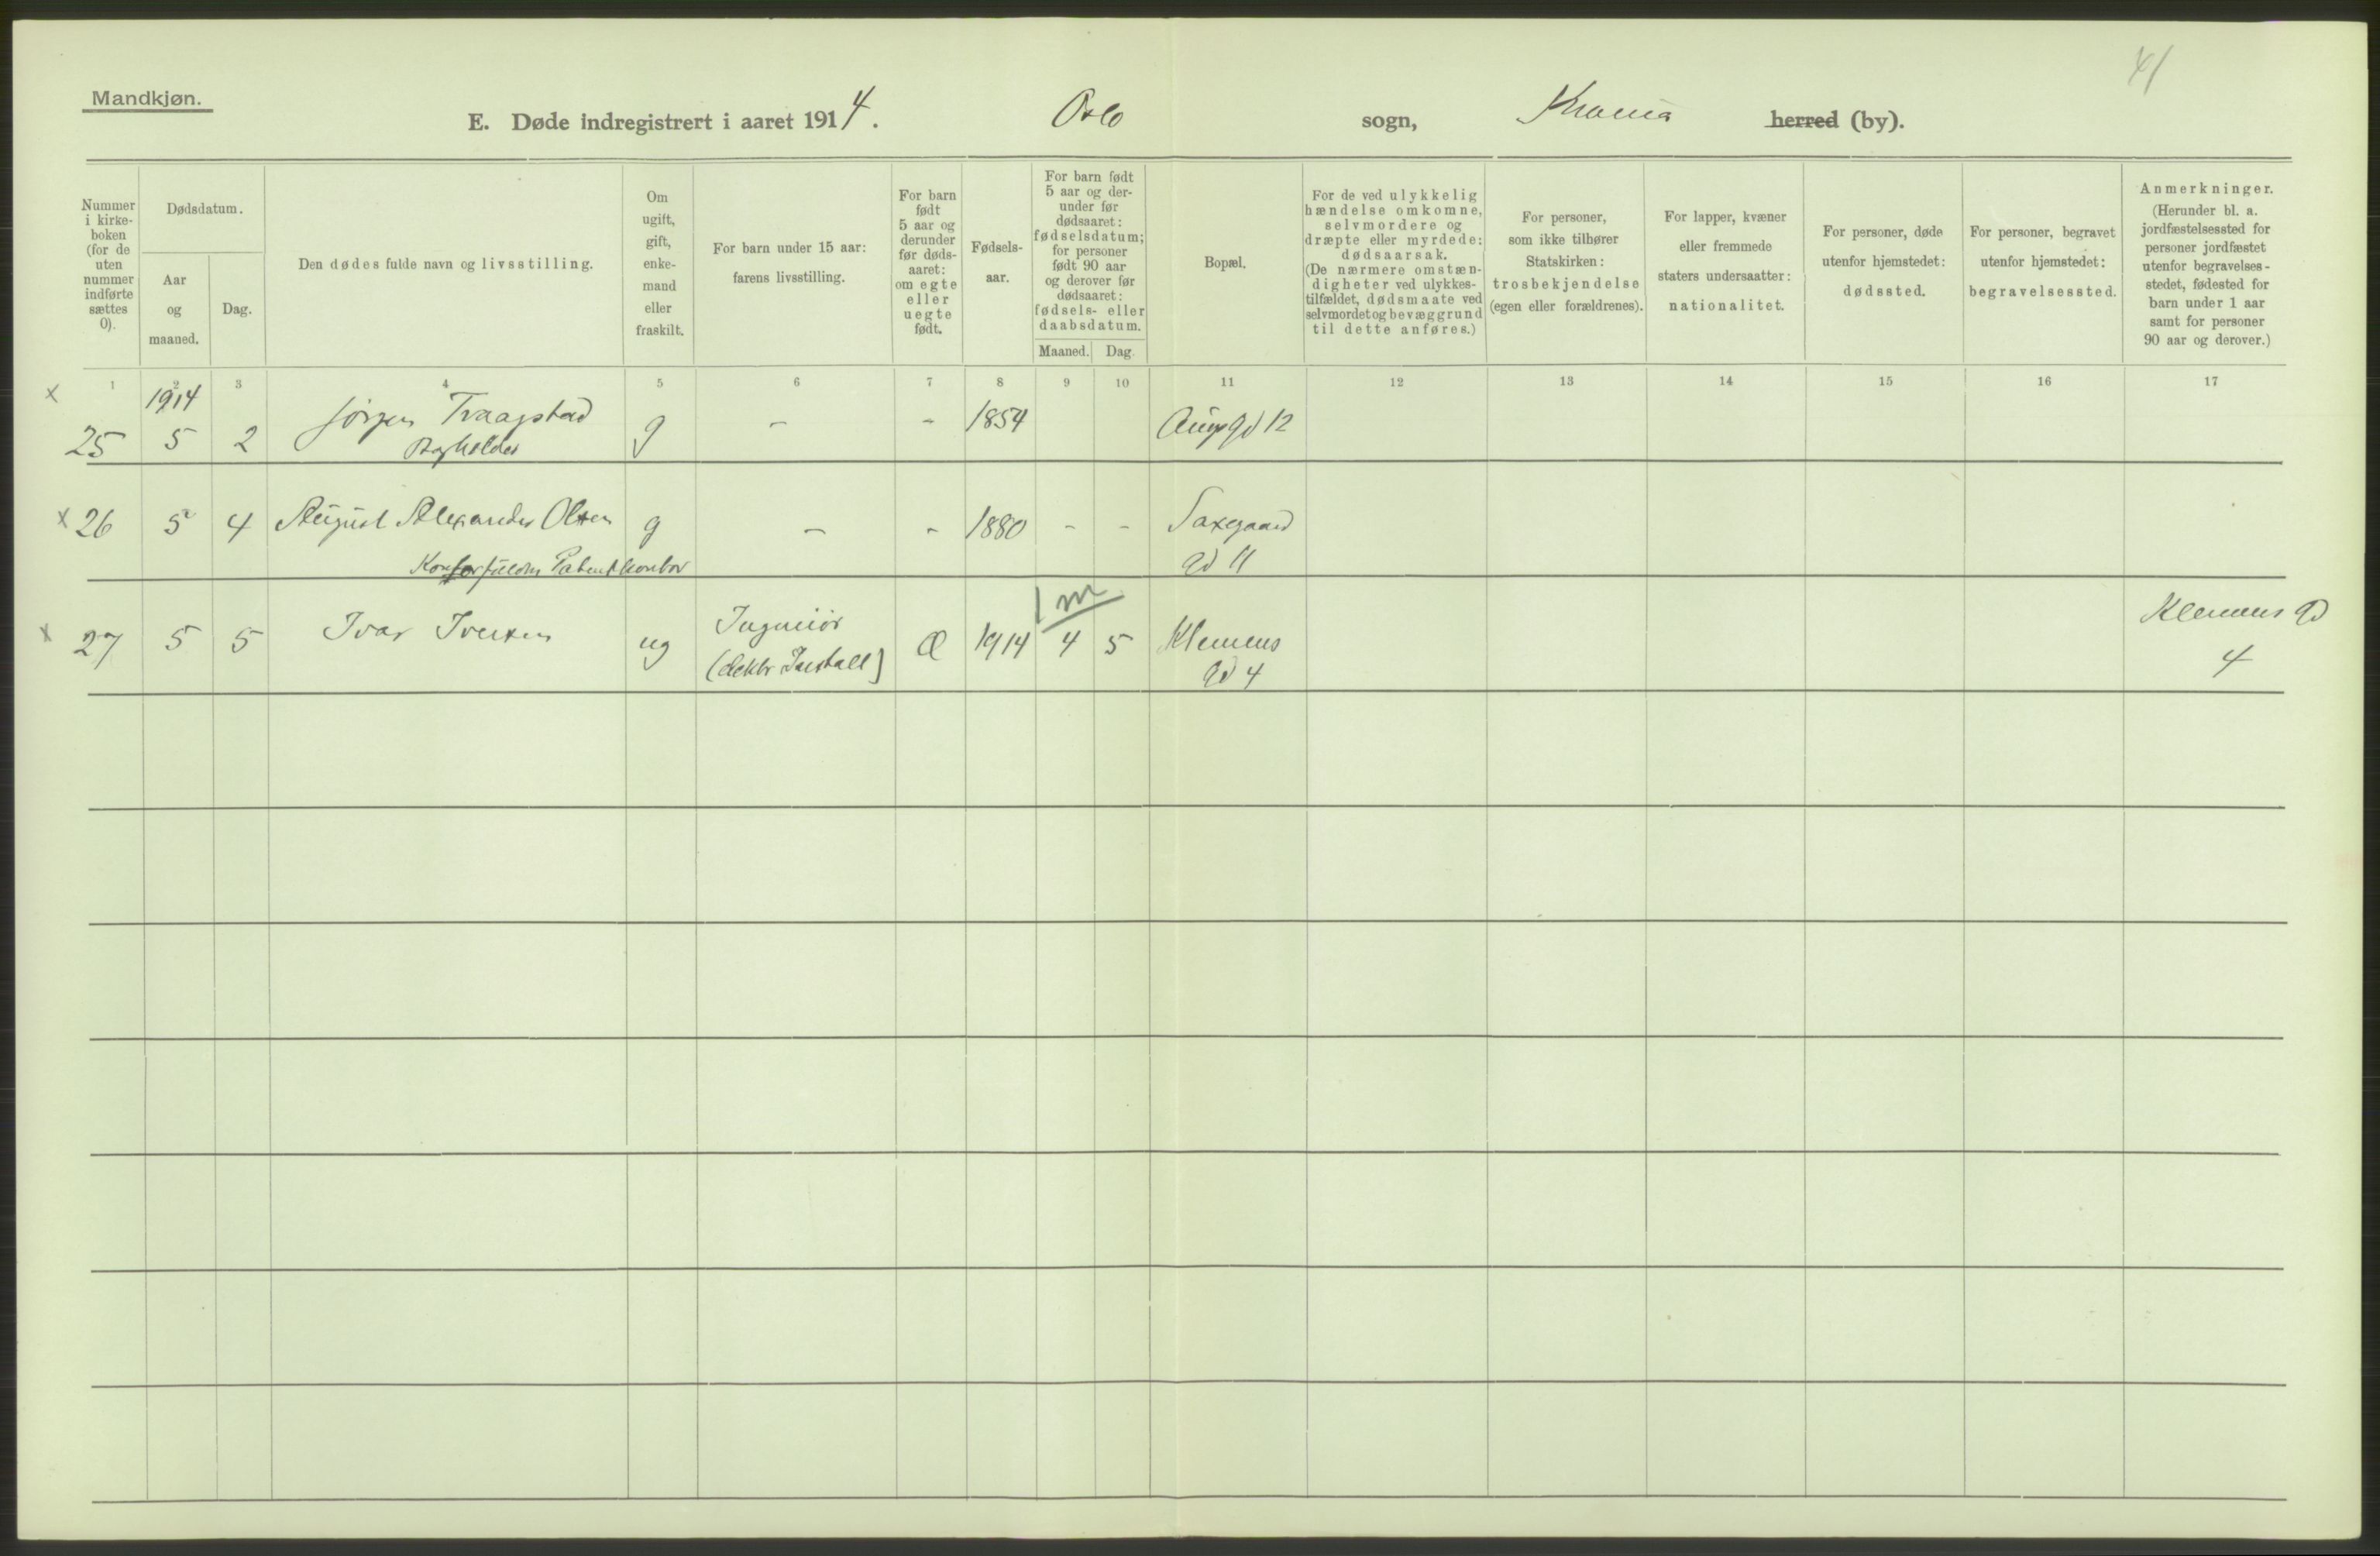 41
Mandkjøn.
E. Døde indregistrert i aaret 1914. Oslo sogn, Krania herred (by).
Nummer i kirke-boken (for de uten nummer indførte sættes 0).
Dødsdatum.
Aar og maaned.
Dag.
Den dødes fulde navn og livsstilling.
Om ugift, gift, enke-mand eller fraskilt.
For barn under 15 aar: farens livsstilling.
For barn født 5 aar og derunder før døds-aaret: om egte eller uegte født.
Fødsels-aar.
For barn født 5 aar og der-under før dødsaaret: fødselsdatum; for personer født 90 aar og derover før dødsaaret: fødsels- eller daabsdatum.
Maaned. Dag.
Bopæl.
For de ved ulykkelig hændelse omkomne, selvmordere og dræpte eller myrdede: dødsaarsak. (De nærmere omstæn-digheter ved ulykkes-tilfældet, dødsmaate ved selvmordet og bevæggrund til dette anføres.)
For personer, som ikke tilhører Statskirken: trosbekjendelse (egen eller forældrenes).
For lapper, kvæner eller fremmede staters undersaatter: nationalitet.
For personer, døde utenfor hjemstedet: dødssted.
For personer, begravet utenfor hjemstedet: begravelsessted.
Anmerkninger. (Herunder bl. a. jordfæstelsessted for personer jordfæstet utenfor begravelses-stedet, fødested for barn under 1 aar samt for personer 90 aar og derover.)
1 2 3 4 5 6 7 8 9 10 11 12 13 14 15 16 17
x 1914
25 5 2 Jørgen Traagstad g - - 1854 Aug gd 12
Bogholder
x 26 5 4 August Alexander Olsen g - - 1880 - - Saxegaard
Patentkontor gd 11
1 m
x 27 5 5 Ivar Iversen ug Ingeniør Æ 1914 4 5 Klemens Klemens gd
(elektr Install) gd 4 4